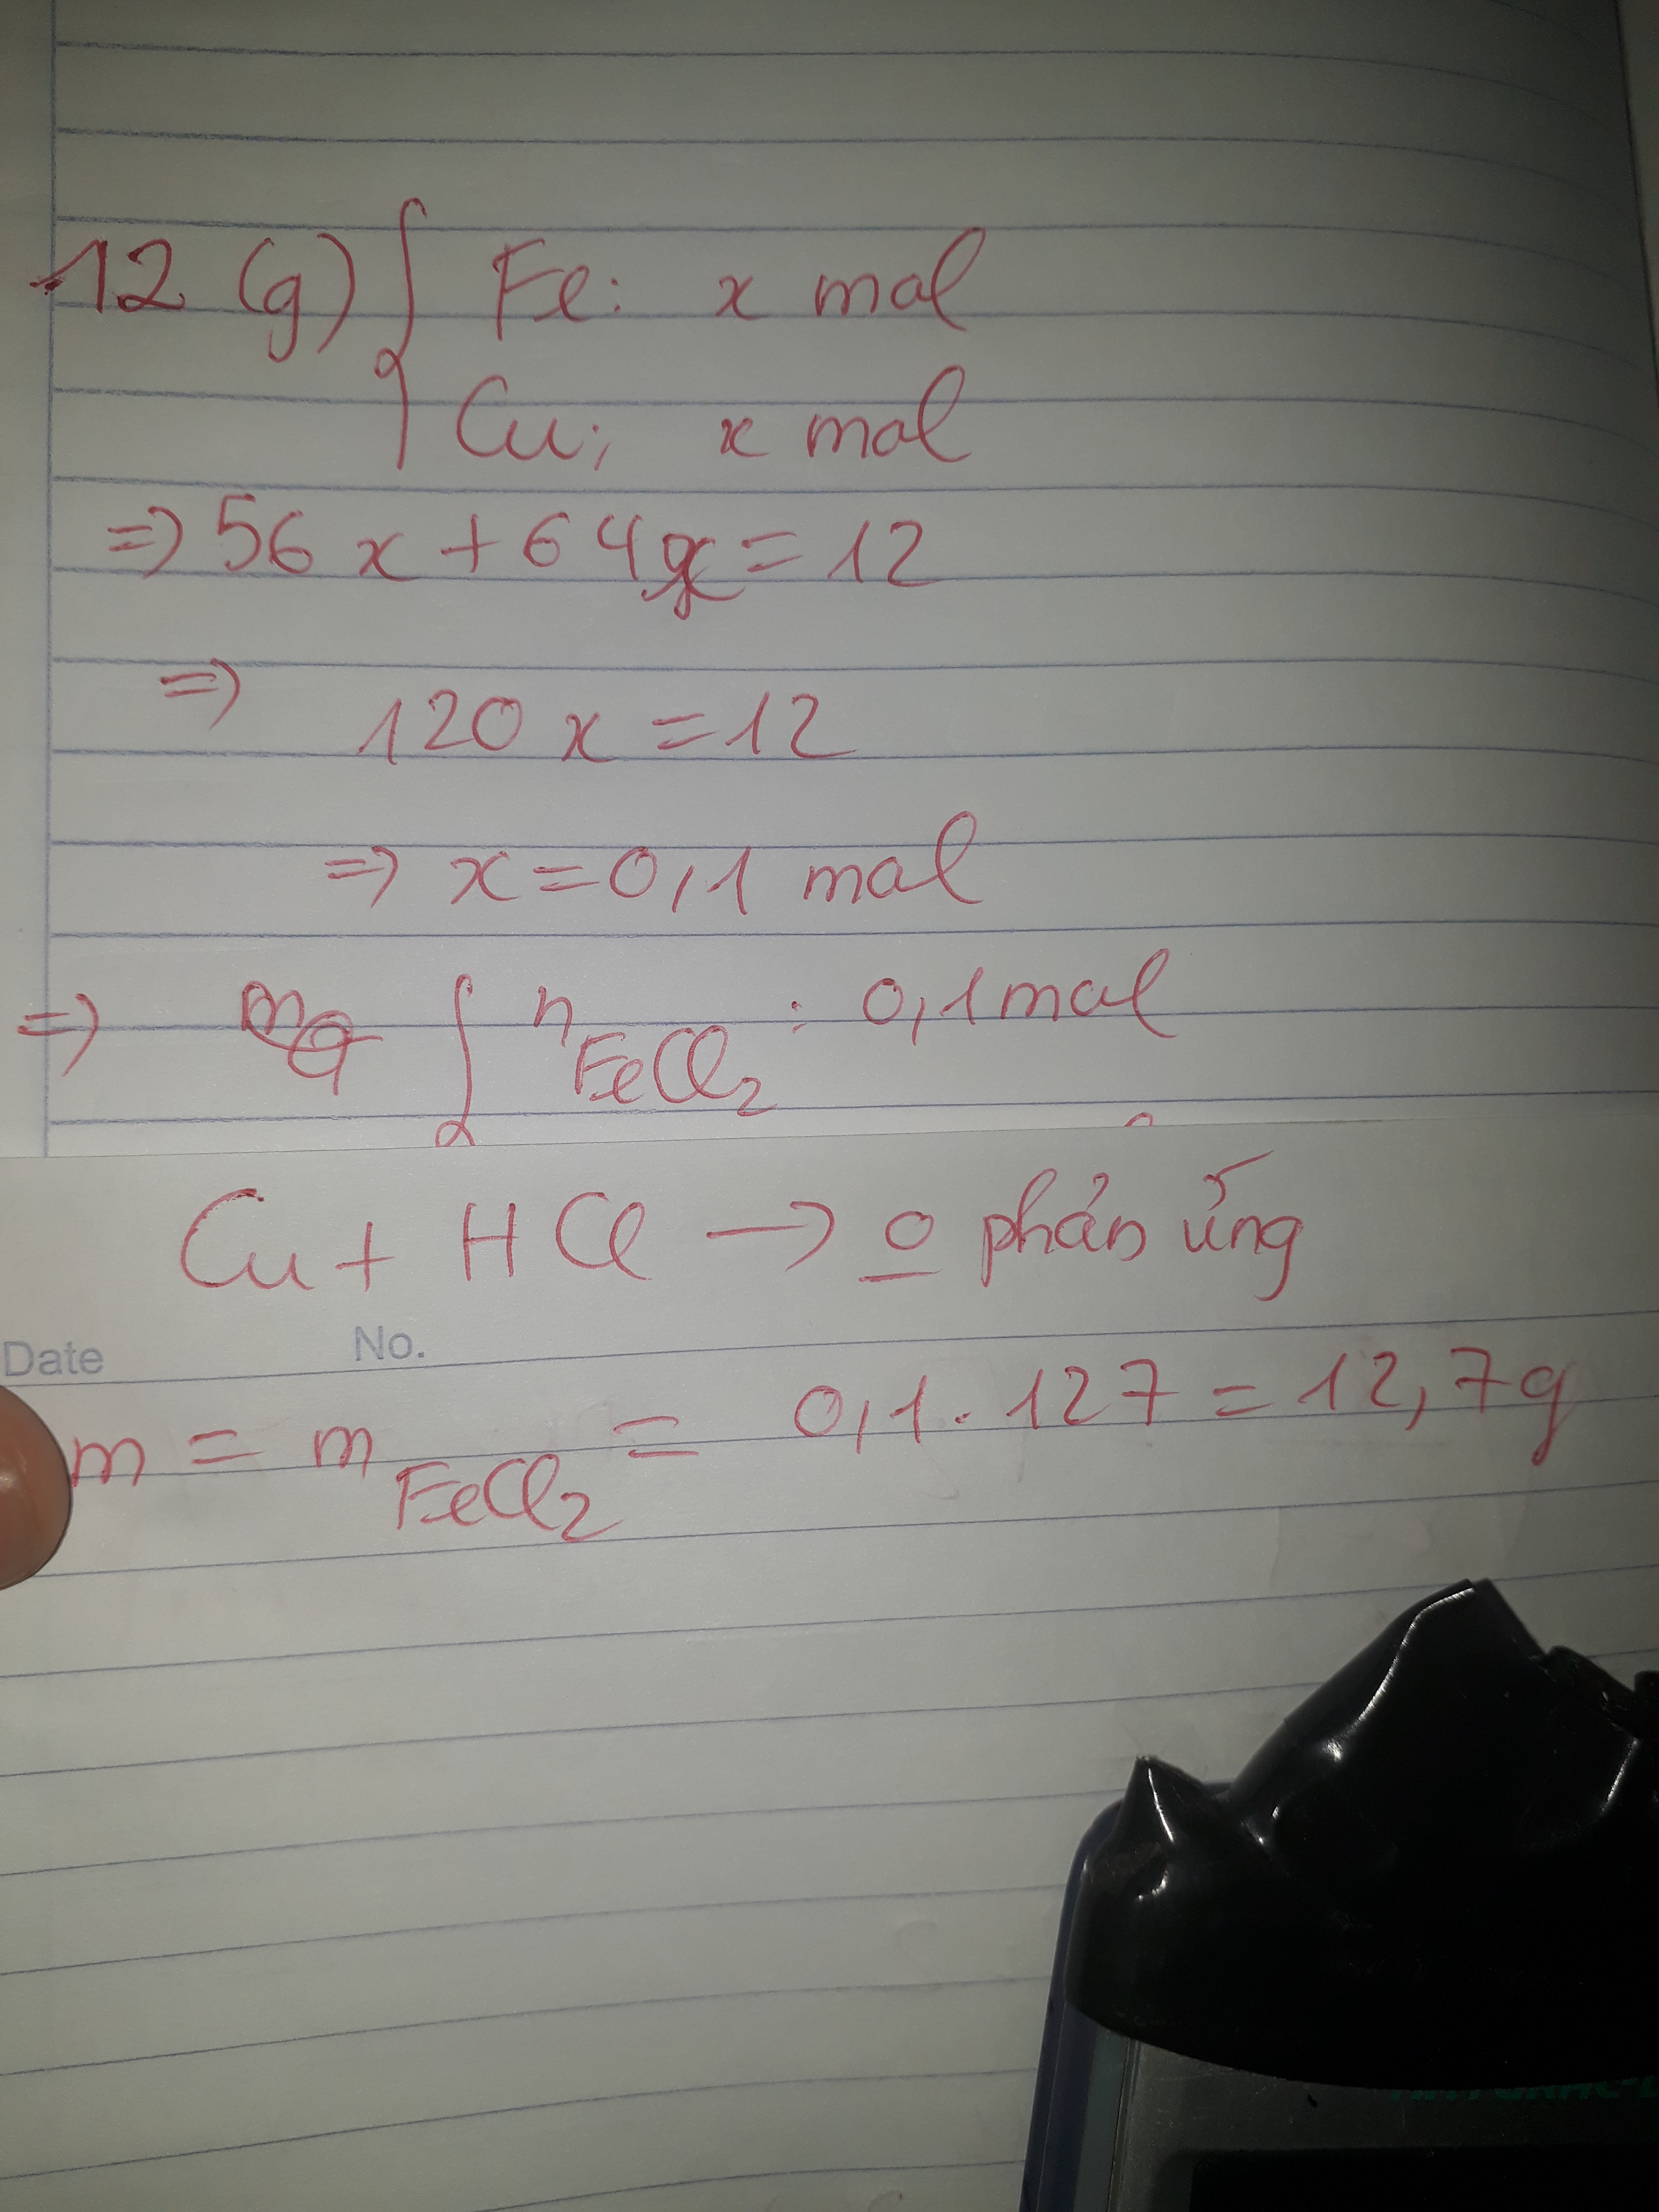 12 (g) { Fe: x mol
Cu: x mol
=> 56x + 64x = 12
=> 120x = 12
=> x = 0,1 mol
=> { n FeCl2 : 0,1 mol
Cu + HCl → o phản ứng
Date No.
m = m FeCl2 = 0,1 . 127 = 12,7g